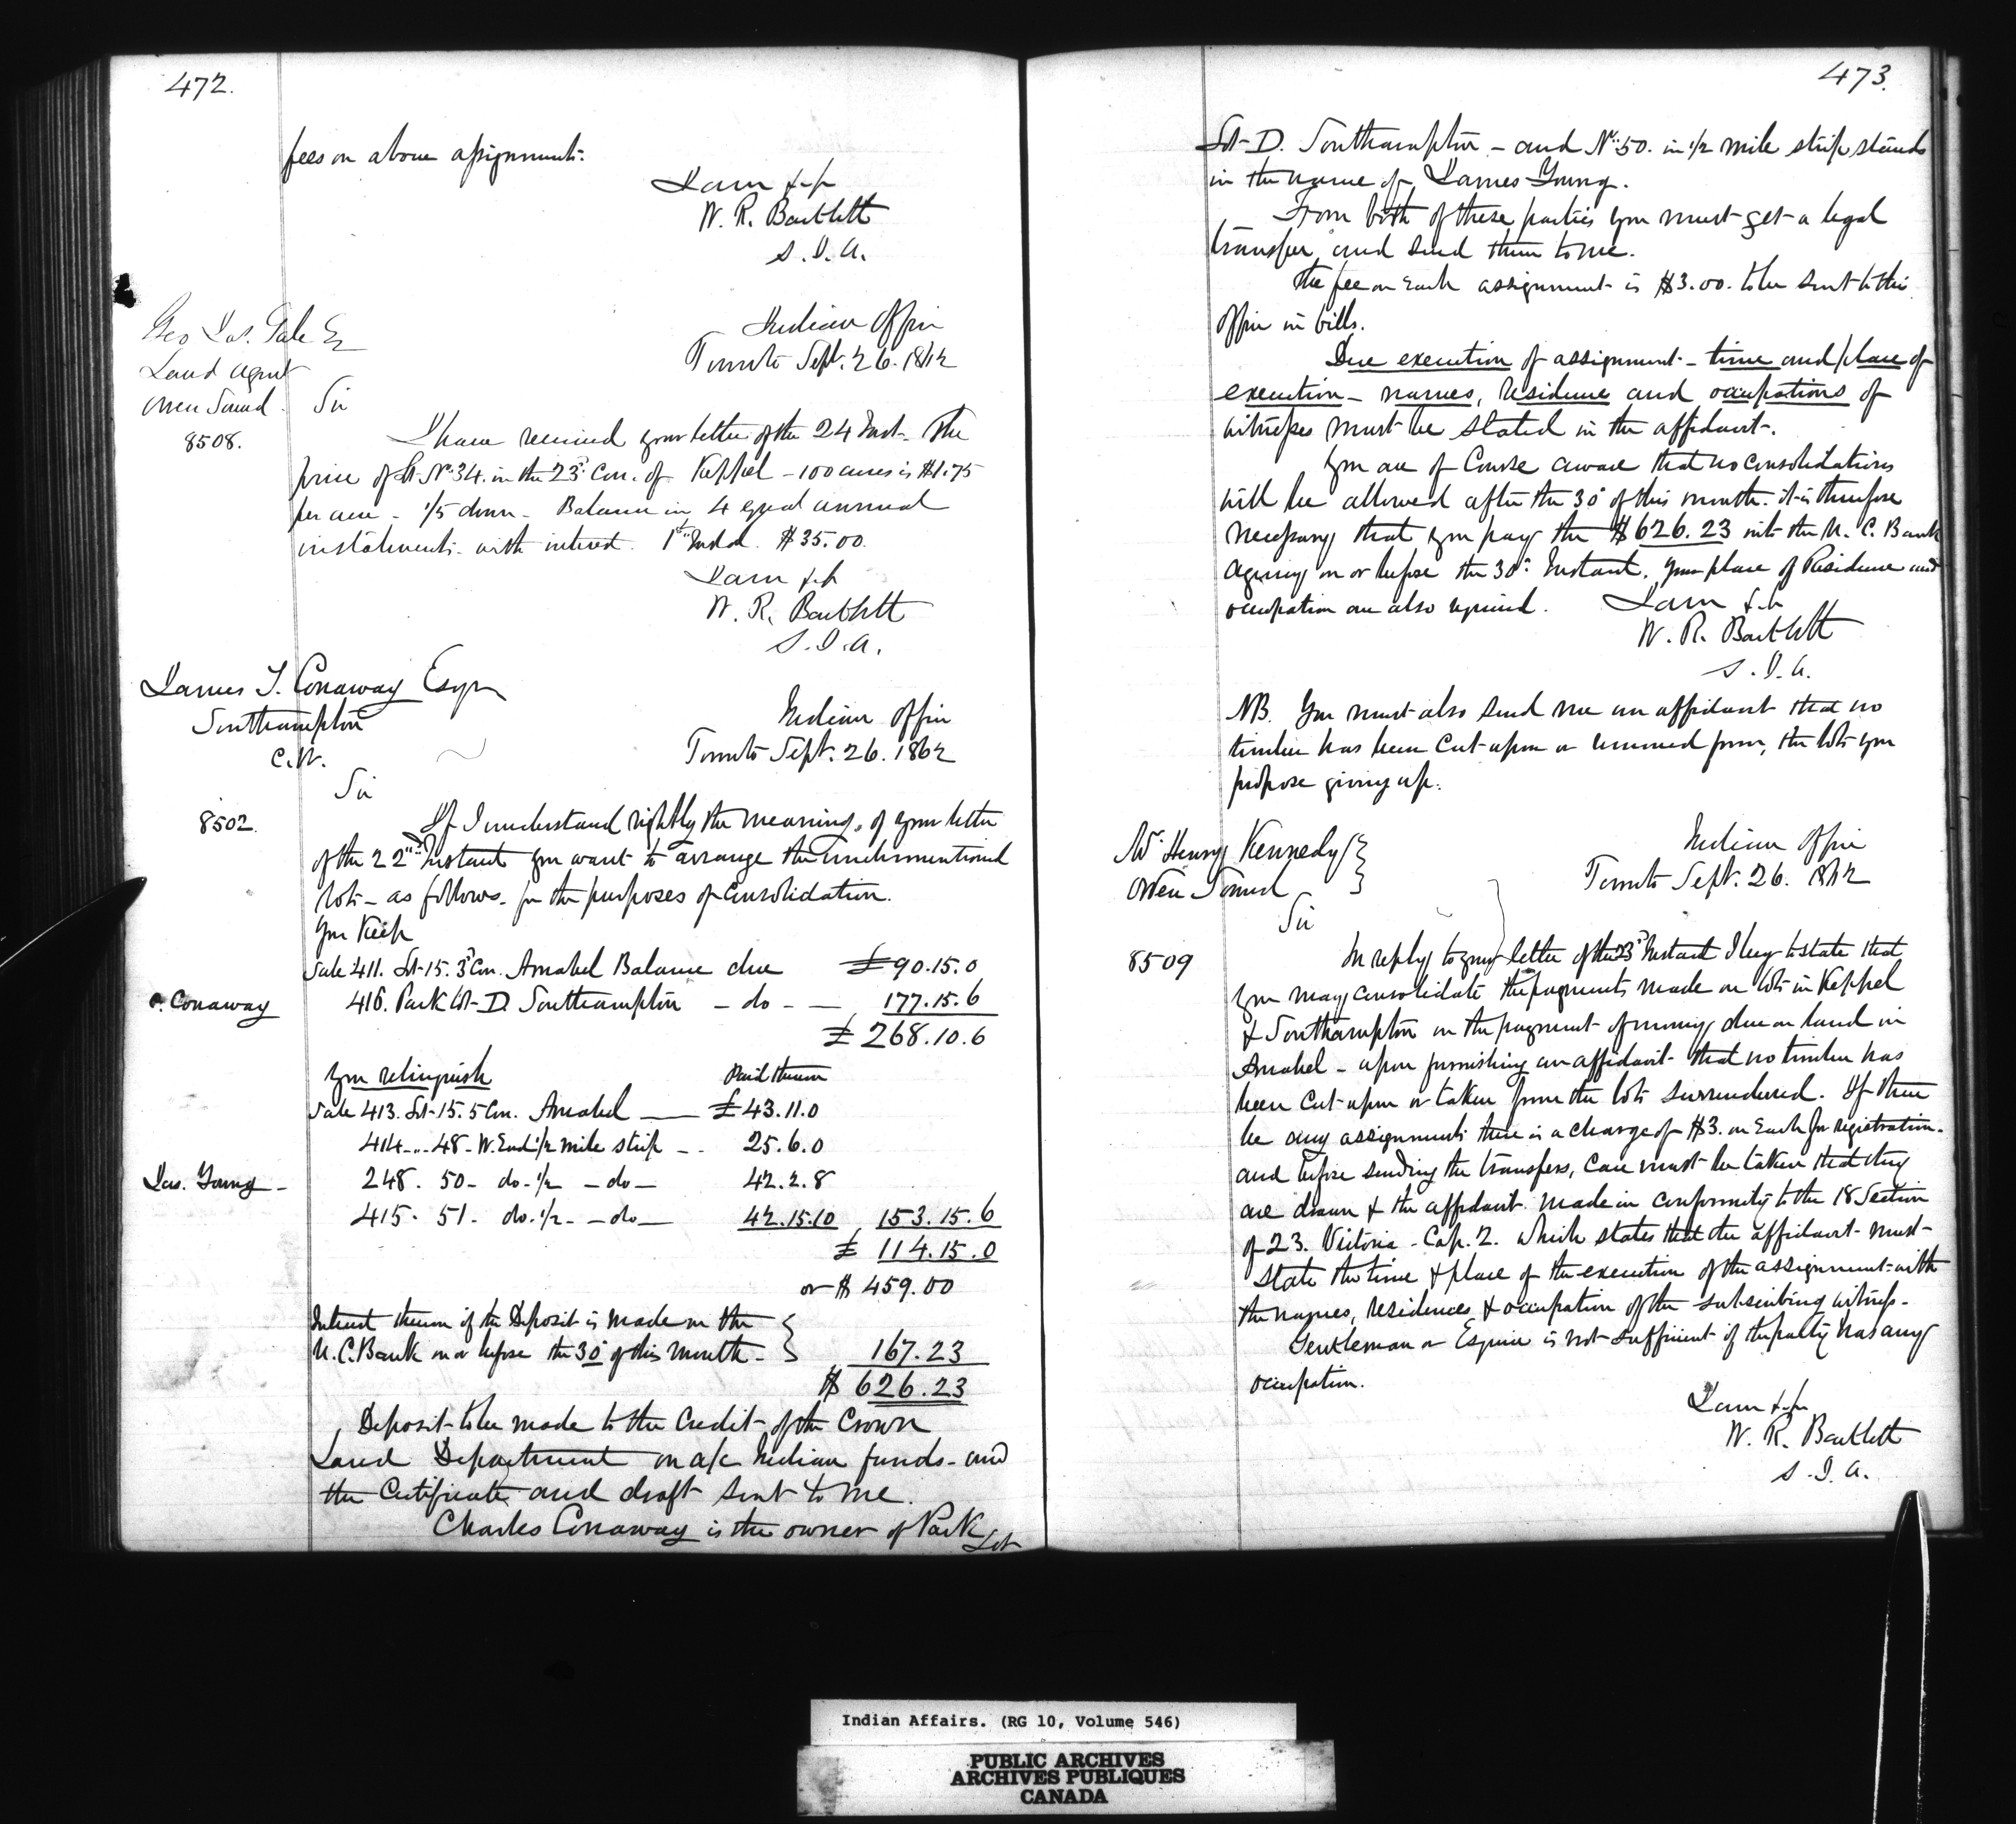 472.
fees on above assignments.
I am &c &c
W. R. Bartlett
S. I. A.
Geo Jas. Gale Eq
Land Agent
Owen Sound
8508.
Indian Office
Toronto Sept. 26. 1862
Sir
I have received your letter of the 24 Inst. The
price of Lot No. 34. in the 23d. Con. of Keppel - 100 acres is $1.75
per acre - 1/5 down - Balance in 4 equal annual
instalments - with interest. 1st Instal. $35.00.
I am &c &c
W. R. Bartlett
S. I. A.
James T. Conaway Esqr
Southampton
C.W.
Indian Office
Toronto Sept. 26. 1862
Sir
8502.
If I understand rightly the meaning of your letter
of the 22nd Instant you want to arrange the undermentioned
lots - as follows - for the purposes of Consolidation.
You Keep
Sale 411. Lot 15. 3d Con. Amabel Balance due £90.15.0
C. Conaway
416. Park Lot D. Southampton - do - — 177.15.6
£ 268.10.6
You relinquish Paid thereon
Sale 413. Lot 15. 5 Con. Amabel — £43.11.0
414 - .. 48 - W. End 1/2 mile strip - . 25.6.0
Jas. Young -
248. 50 - do - 1/2 - do - 42.2.8
415. 51. do. 1/2 - - do — 42.15.10 153.15.6
£ 114.15.0
or $ 459.00
Interest thereon if the Deposit is made in the
U.C. Bank on or before the 30 of this month - 167.23
$ 626.23
Deposit to be made to the Credit of the Crown
Land Department on a/c Indian funds - and
the Certificate and draft sent to me.
Charles Conaway is the owner of Park Lot
473.
Lot D. Southampton - and No. 50. in 1/2 mile strip stands
in the name of James Young.
From both of these parties you must get a legal
transfer and send them to me.
The fee on each assignment is $3.00. to be sent to this
office in bills.
Due execution of assignment - time and place of
execution - names, residence and occupations of
witnesses must be stated in the affidavit.
You are of Course aware that no consolidations
will be allowed after the 30 of this month. it is therefore
necessary that you pay the $626.23 into the U. C. Bank
Agency on or before the 30. Instant. Your place of Residence and
occupation are also required.
I am &c &c
W. R. Bartlett
S. I. A.
NB. You must also send me an affidavit that no
timber has been Cut upon or removed from, the lots you
propose giving up.
Mr. Henry Kennedy
Owen Sound
Indian Office
Toronto Sept. 26. 1862
Sir
8509
In reply to your letter of the 23d Instant I beg to state that
you may consolidate the payments made on lots in Keppel
& Southampton on the payment of money due on land in
Amabel - upon furnishing an affidavit that no timber has
been Cut upon or taken from the lots surrendered. If there
be any assignments there is a charge of $3. on Each for registration.
and before sending the transfers, Care must be taken that they
are drawn & the affidavit made in conformity to the 18 Section
of 23. Victoria - Cap. 2. which states that the affidavit must
state the time & place of the execution of the assignment with
the names, residences & occupation of the subscribing witness.
Gentleman or Esquire is not sufficient if the party has any
occupation.
I am &c &c
W. R. Bartlett
S. I. A.
Indian Affairs. (RG 10, Volume 546)
PUBLIC ARCHIVES
ARCHIVES PUBLIQUES
CANADA